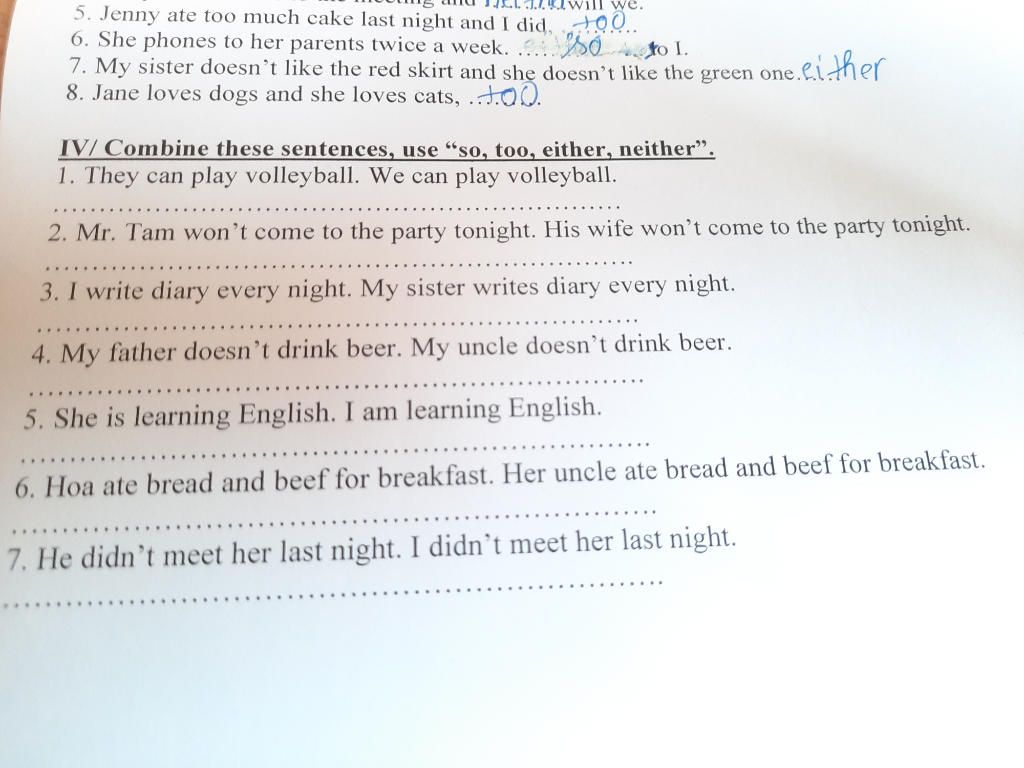 will we.
5. Jenny ate too much cake last night and I did, ..too....
6. She phones to her parents twice a week. ......so ......to I.
7. My sister doesn't like the red skirt and she doesn't like the green one.either
8. Jane loves dogs and she loves cats, ...too.
IV/ Combine these sentences, use “so, too, either, neither”.
1. They can play volleyball. We can play volleyball.
2. Mr. Tam won't come to the party tonight. His wife won't come to the party tonight.
3. I write diary every night. My sister writes diary every night.
4. My father doesn't drink beer. My uncle doesn't drink beer.
5. She is learning English. I am learning English.
6. Hoa ate bread and beef for breakfast. Her uncle ate bread and beef for breakfast.
7. He didn't meet her last night. I didn't meet her last night.